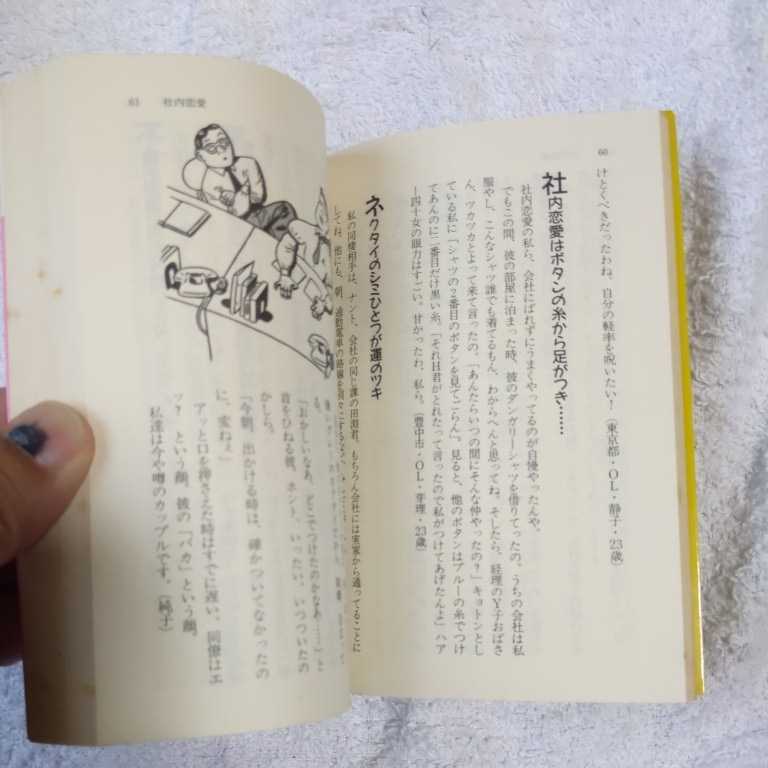 60
けとくべきだったわね、自分の軽率を呪いたい!(東京都・OL・静子・23歳)
社内恋愛はボタンの糸から足がつき……
社内恋愛の私ら、会社にばれずにうまくやってるのが自慢やったんや。
でもこの間、彼の部屋に泊まった時、彼のダンガリーシャツを借りてったの。うちの会社は私
服やし、こんなシャツ誰でも着てるもん、わからへんと思ってね。そしたら、経理のY子おばさ
ん、ツカツカとよって来て言ったの。「あんたらいつの間にそんな仲やったの?」キョトンとし
ている私に「シャツの2番目のボタンを見てごらん」。見ると、他のボタンはブルーの糸でつけ
てあんのに二番目だけ黒い糸。「それH君がとれたって言ったので私がつけてあげたんよ」ハア
ー四十女の眼力はすごい。甘かったわ、私ら。(豊中市・OL・芽理・23歳)
ネクタイのシミひとつが運のツキ
私の同棲相手は、ナント、会社の同じ課の田淵君。もちろん会社には実家から通ってることに
してね。他にも、朝、通勤電車の路線を別々にする
61 社内恋愛
る。
「おかしいなあ、どこでつけたのかなあ……」と
首をひねる彼。ホント、いったい、いつついたの
かしら。
「今朝、出かける時は、確かついてなかったの
に、変ねぇ」
アッと口を押さえた時はすでに遅い、同僚はエ
ッ?という顔、彼の「バカ」という顔。
私達は今や噂のカップルです。(純子)